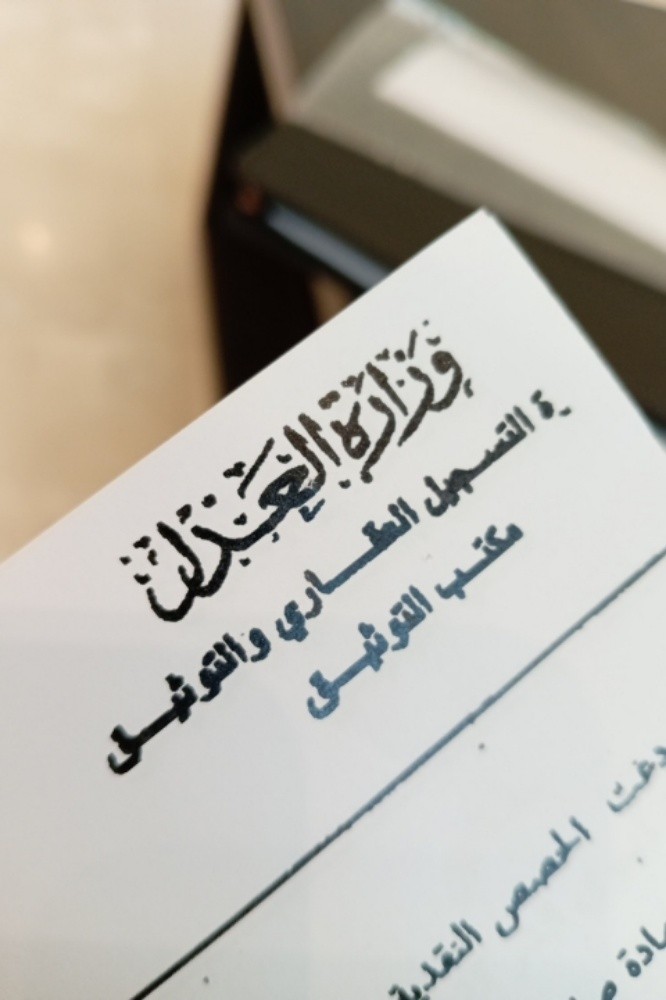 وزارة العدل
ة التسجيل العقاري والتوثيق
مكتب التوثيق
الحصص النقدية